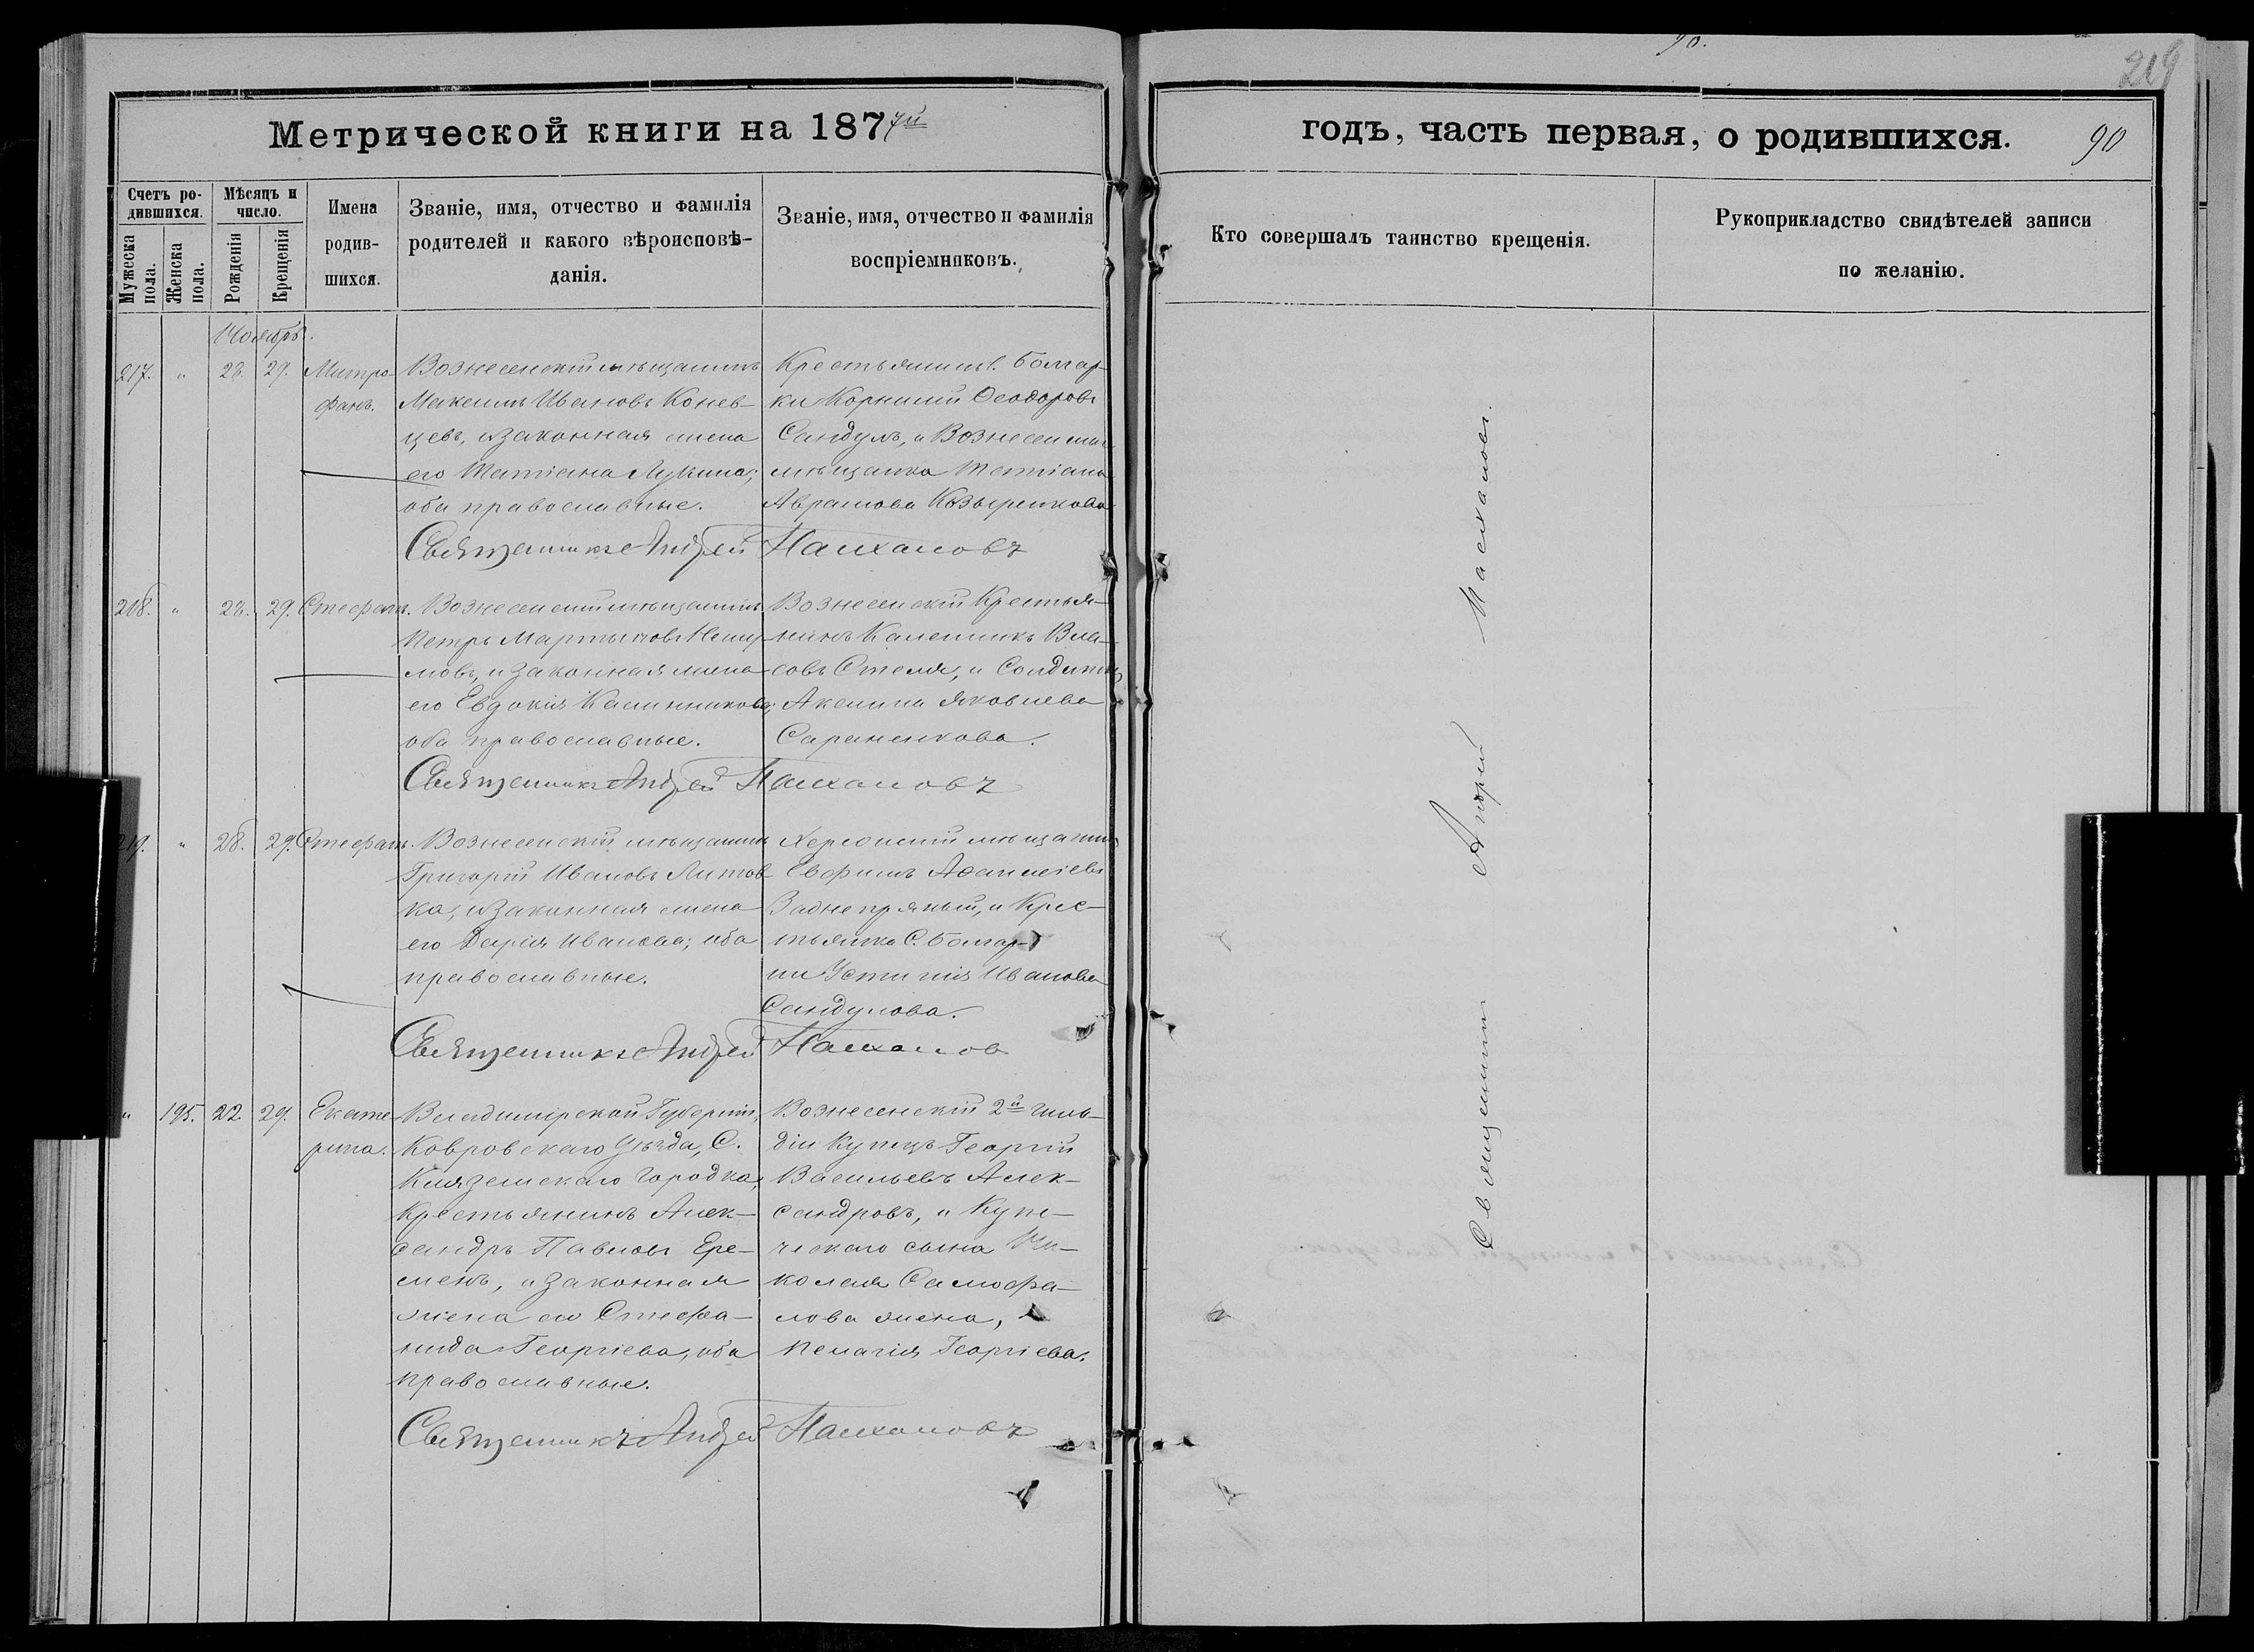 90.
219
Метрической книги на 1877й
годъ, часть первая, о родившихся.
90
Счетъ ро-
дившихся.
Мужеска
пола.
Женска
пола.
Мѣсяцъ и
число.
Рожденія
Крещенія
Имена
родив-
шихся.
Званіе, имя, отчество и фамилія
родителей и какого вѣроисповѣ-
данія.
Званіе, имя, отчество и фамилія
воспріемниковъ.
Кто совершалъ таинство крещенія.
Рукоприкладство свидѣтелей записи
по желанію.
Ноябрь.
217.
"
28.
29.
Митро-
фанъ.
Вознесенскій мѣщанинъ
Максимъ Ивановъ Конев-
цевъ, и законная жена
его Татіана Лукина;
оба православные.
Крестьянинъ С. Болгар-
ки Корнилій Ѳеодоровъ
Сандулъ, и Вознесенская
мѣщанка Татіана
Аврамова Козыренкова
Священникъ Андрей
218.
"
28.
29.
Стефанъ.
Вознесенскій мѣщанинъ
Петръ Мартыновъ
и законная жена
его Евдокія Калинникова;
оба православные.
Вознесенскій Крестья-
нинъ Калинникъ Вла-
совъ Стеля, и Солдатка
Акилина Яковлева
Сараненкова.
Священникъ Андрей
219.
"
28.
29.
Стефанъ.
Вознесенскій мѣщанинъ
Григорій Ивановъ Литов-
ка, и законная жена
его Дарія Иванова; оба
православные.
Херсонскій мѣщанинъ
Евфимъ Аѳанасіевъ
Заднепряный, и Крес-
тьянка С. Болгар-
ки Устинія Иванова
Сандулова.
Священникъ Андрей
"
195.
22.
29.
Екате-
рина.
Владимірской Губерніи,
Ковровскаго Уѣзда, С.
Клязменскаго городка,
Крестьянинъ Алек-
сандръ Павловъ Ере-
менъ, и законная
жена его Стефа-
нида Георгіева, оба
православные.
Вознесенскій 2й гиль-
діи Купецъ Георгій
Васильевъ Алек-
сандровъ, и Купе-
ческаго сына Ни-
колая Самофа-
лова жена,
Пелагія Георгіева.
Священникъ Андрей
Священникъ Андрей